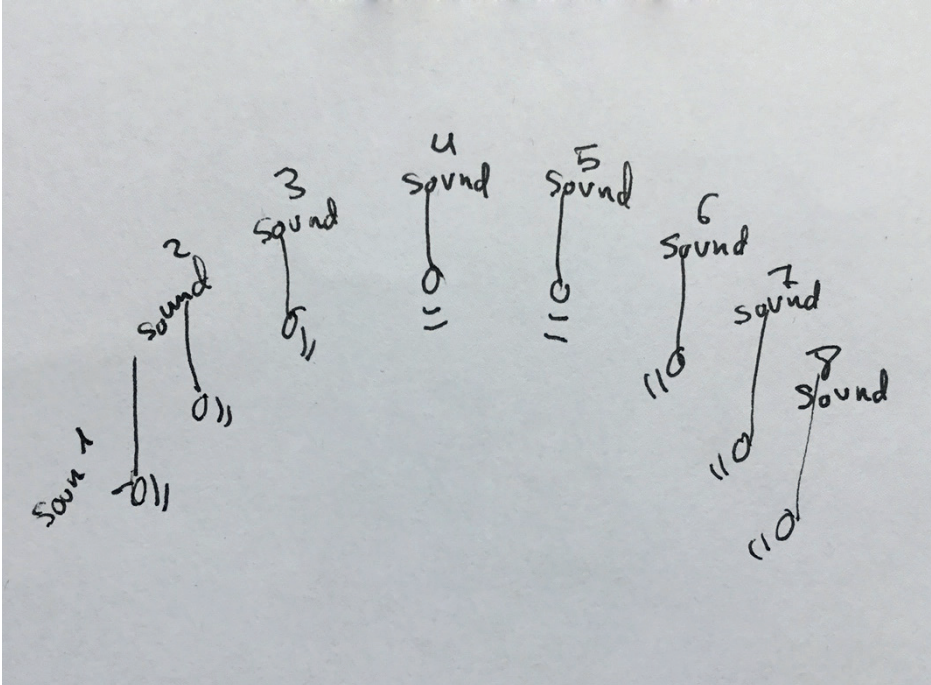 Soun 1
2
sound
3
Sound
4
Sound
5
Sound
6
Sound
7
sound
8
Sound